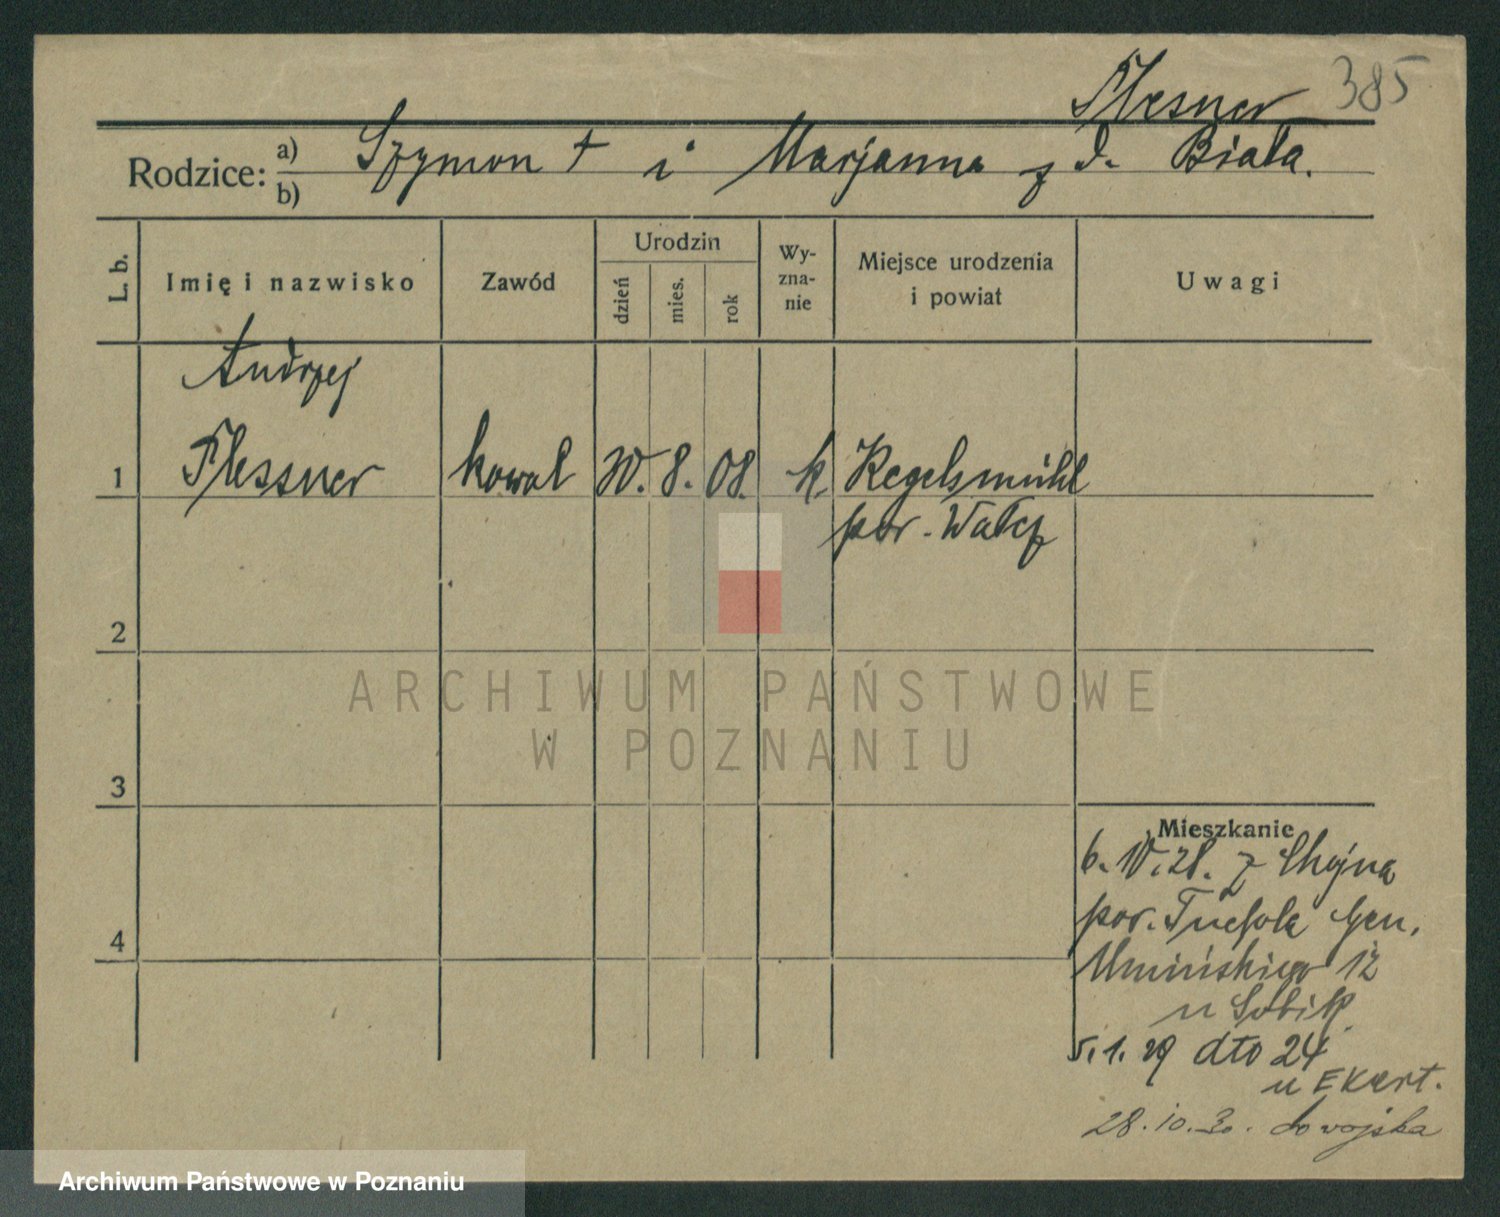 Plesner 385
Rodzice: a) b) Szymon † i Marjanna z d. Biała.
L. b. Imię i nazwisko Zawód Urodzin dzień mies. rok Wy-zna-nie Miejsce urodzenia i powiat Uwagi
Andrzej
1 Plessner kowal 30. 8. 08. k. Regelsmühl
pow. Wałcz
2
ARCHIWUM PAŃSTWOWE
W POZNANIU
3
Mieszkanie
6. 10. 28. z Chojna
pow. Tuchola Gen.
4
Umińskiego 12
u Sobik
5. 1. 29 dto 24
u Ekert.
28. 10. 30. do wojska
Archiwum Państwowe w Poznaniu